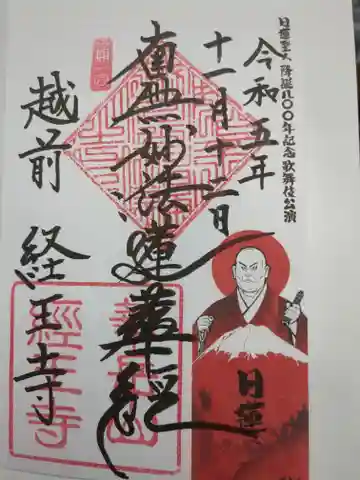 日蓮聖人降誕八〇〇年記念歌舞伎公演
令和五年
十一月十二日
南無妙法蓮華経
越前
経王寺
日蓮